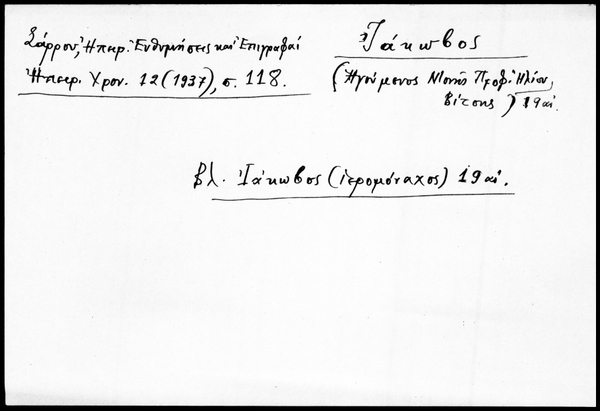 Σάρρου, Ἠπειρ. Ἐνθυμήσεις καὶ Ἐπιγραφαί
Ἠπειρ. Χρον. 12 (1937), σ. 118.
Ἰάκωβος
(Ἡγούμενος Μονῆς Προφ. Ἠλίου,
Βίτσης) 19 αἰ.
βλ. Ἰάκωβος (ἱερομόναχος) 19 αἰ.